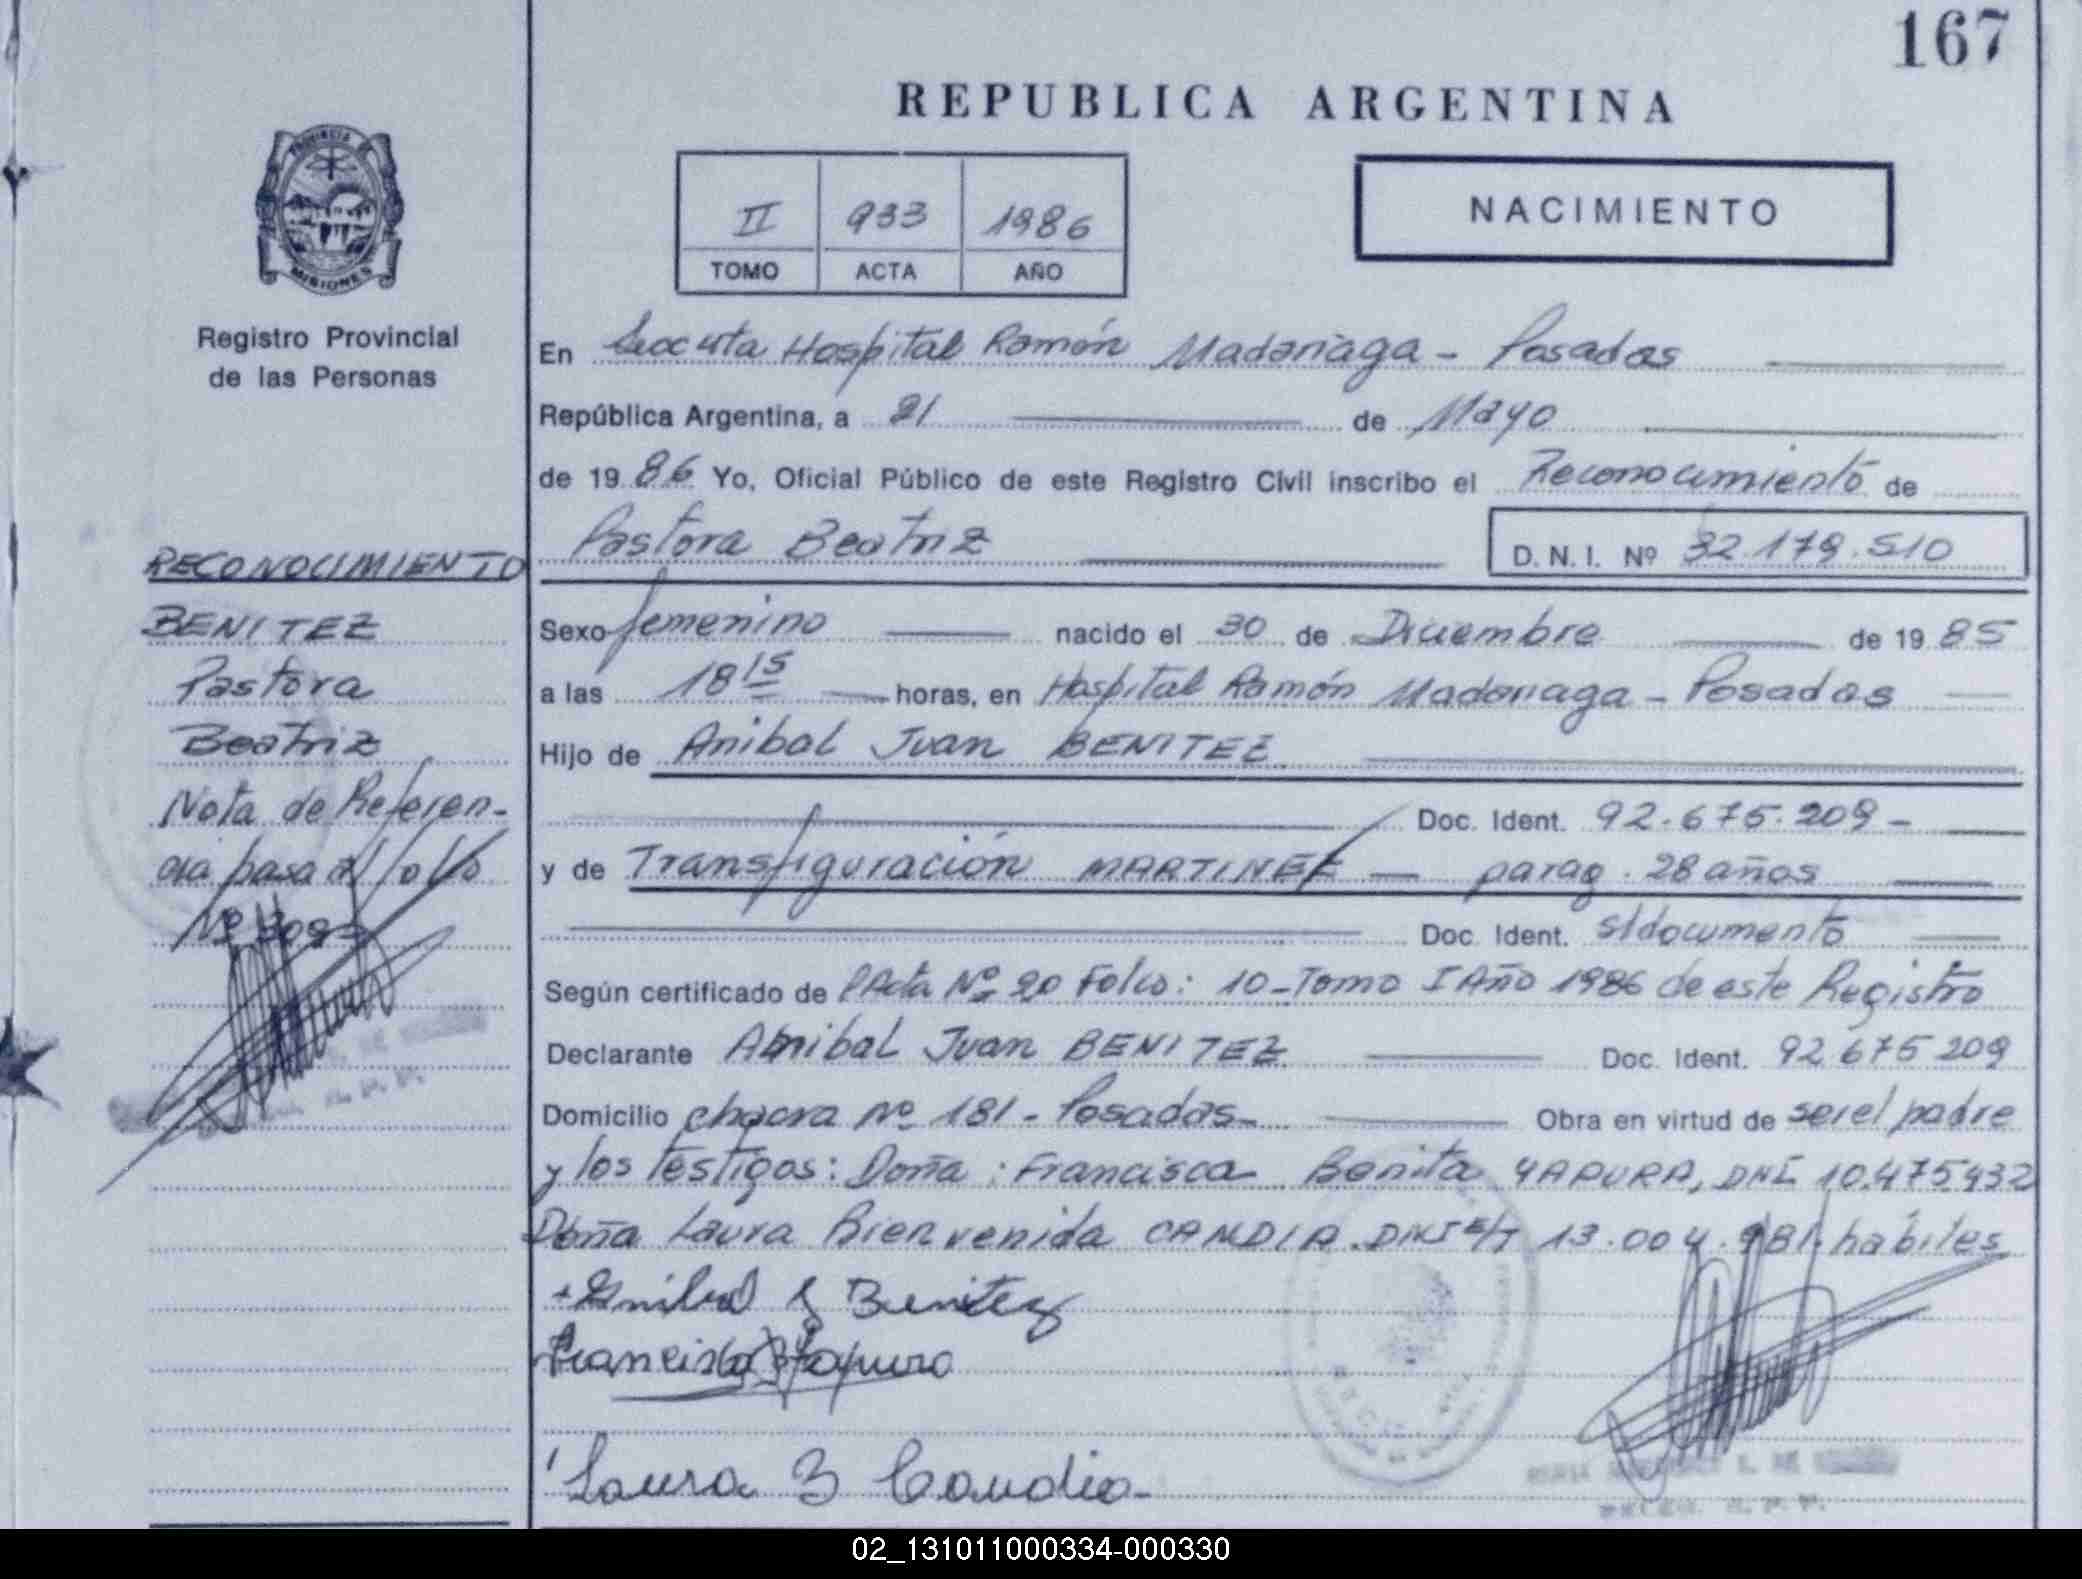 167
REPUBLICA ARGENTINA
PROVINCIA DE
MISIONES
Registro Provincial
de las Personas
II 933 1986
TOMO ACTA AÑO
NACIMIENTO
En Seccta Hospital Ramón Madariaga - Posadas
República Argentina, a 21 de Mayo
de 1986 Yo, Oficial Público de este Registro Civil inscribo el Reconocimiento de
Pastora Beatriz D.N.I. Nº 32.179.510
Sexo femenino nacido el 30 de Diciembre de 1985
a las 18 15 horas, en Hospital Ramón Madariaga - Posadas
Hijo de Anibal Juan BENITEZ
Doc. Ident. 92.675.209 -
y de Transfiguración MARTINEZ - parag. 28 años
Doc. Ident. s/documento
Según certificado de /Acta Nº 20 Folio: 10 - Tomo I Año 1986 de este Registro
Declarante Anibal Juan BENITEZ Doc. Ident. 92 675 209
Domicilio chacra Nº 181 - Posadas - Obra en virtud de ser el padre
y los testigos: Doña: Francisca Benita YAPURA, DNI 10.475.432
Doña Laura Bienvenida CANDIA. DNI 13.004.981. hábiles
Anibal J Benitez
Francisca B Yapura
Laura B Candia
RECONOCIMIENTO
BENITEZ
Pastora
Beatriz
Nota de Referen-
cia pasa al folio
Nº
02_131011000334-000330